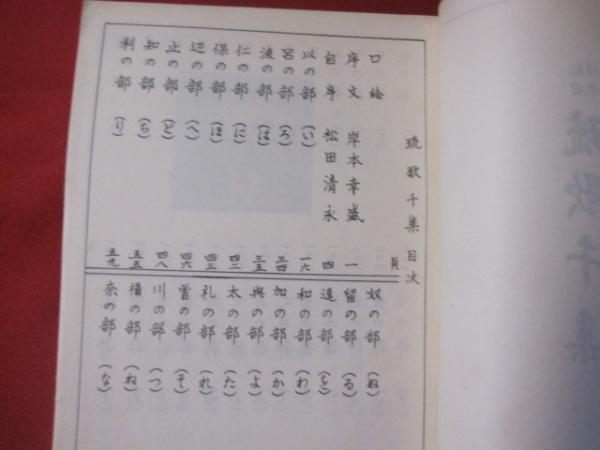 琉歌千集
琉歌千集 目次
頁
口絵
序文 岸本幸盛 一
自序 松田清永 四
以の部 (い) 一六
呂の部 (ろ) 三四
波の部 (は) 三五
仁の部 (に) 四二
保の部 (ほ) 四三
辺の部 (へ) 四六
止の部 (と) 四八
知の部 (ち) 五五
利の部 (り) 五九
奴の部 (ぬ)
留の部 (る)
遠の部 (を)
和の部 (わ)
加の部 (か)
與の部 (よ)
太の部 (た)
礼の部 (れ)
曽の部 (そ)
川の部 (つ)
の部 (ね)
奈の部 (な)